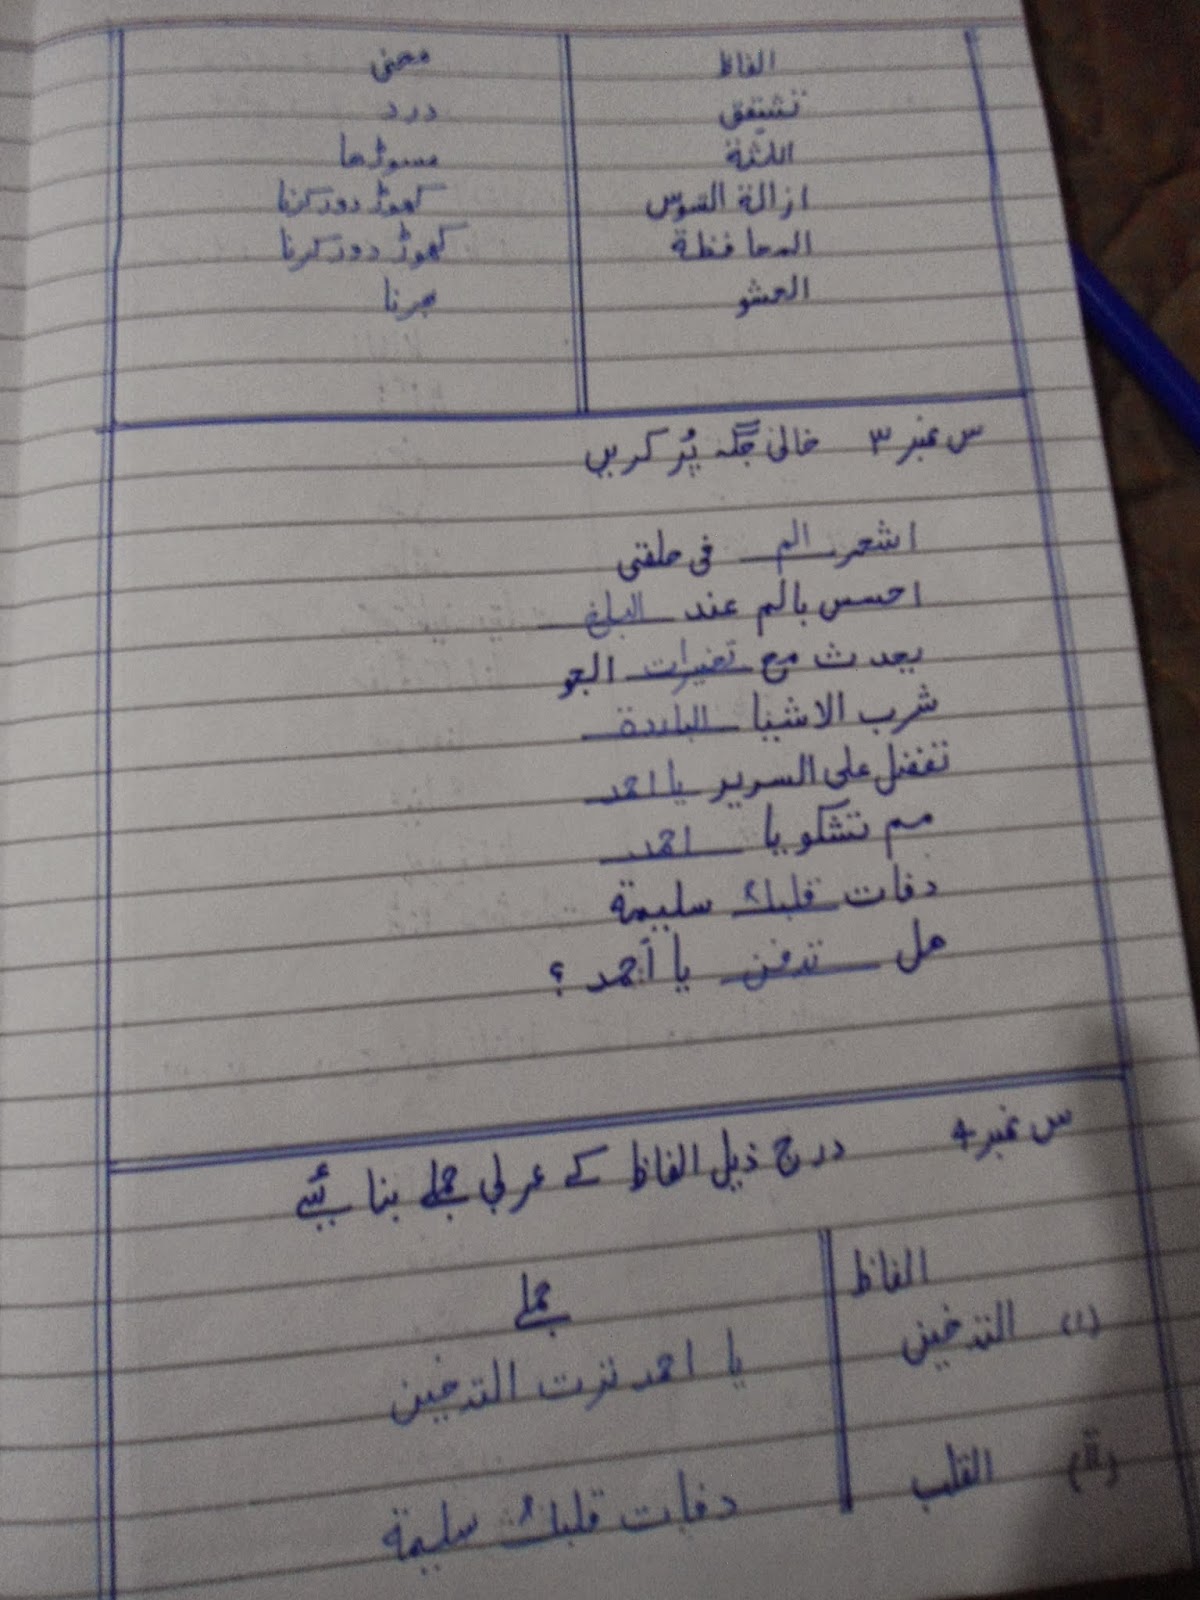 الفاظ معنی
تشتفق درد
اللثة مسوڑھا
ازالة التسوس کھوڑ دور کرنا
المحافظة کھوڑ دور کرنا
الحشو بھرنا
س نمبر ۳ خالی جگہ پُر کریں
اشعر الم فی حلقتی
احسس بالم عند البلغ
یحدث مع تغیرات الجو
شرب الاشیا الباردة
تفضل علی السریر یا احمد
مم تشکو یا احمد
دفات قلبك سلیمة
هل تدفن یا أحمد ؟
س نمبر 4 درج ذیل الفاظ کے عربی جملے بنائیے
الفاظ جملے
(i) التدخین یا احمد نزت التدخین
(ii) القلب دفات قلبك سلیمة